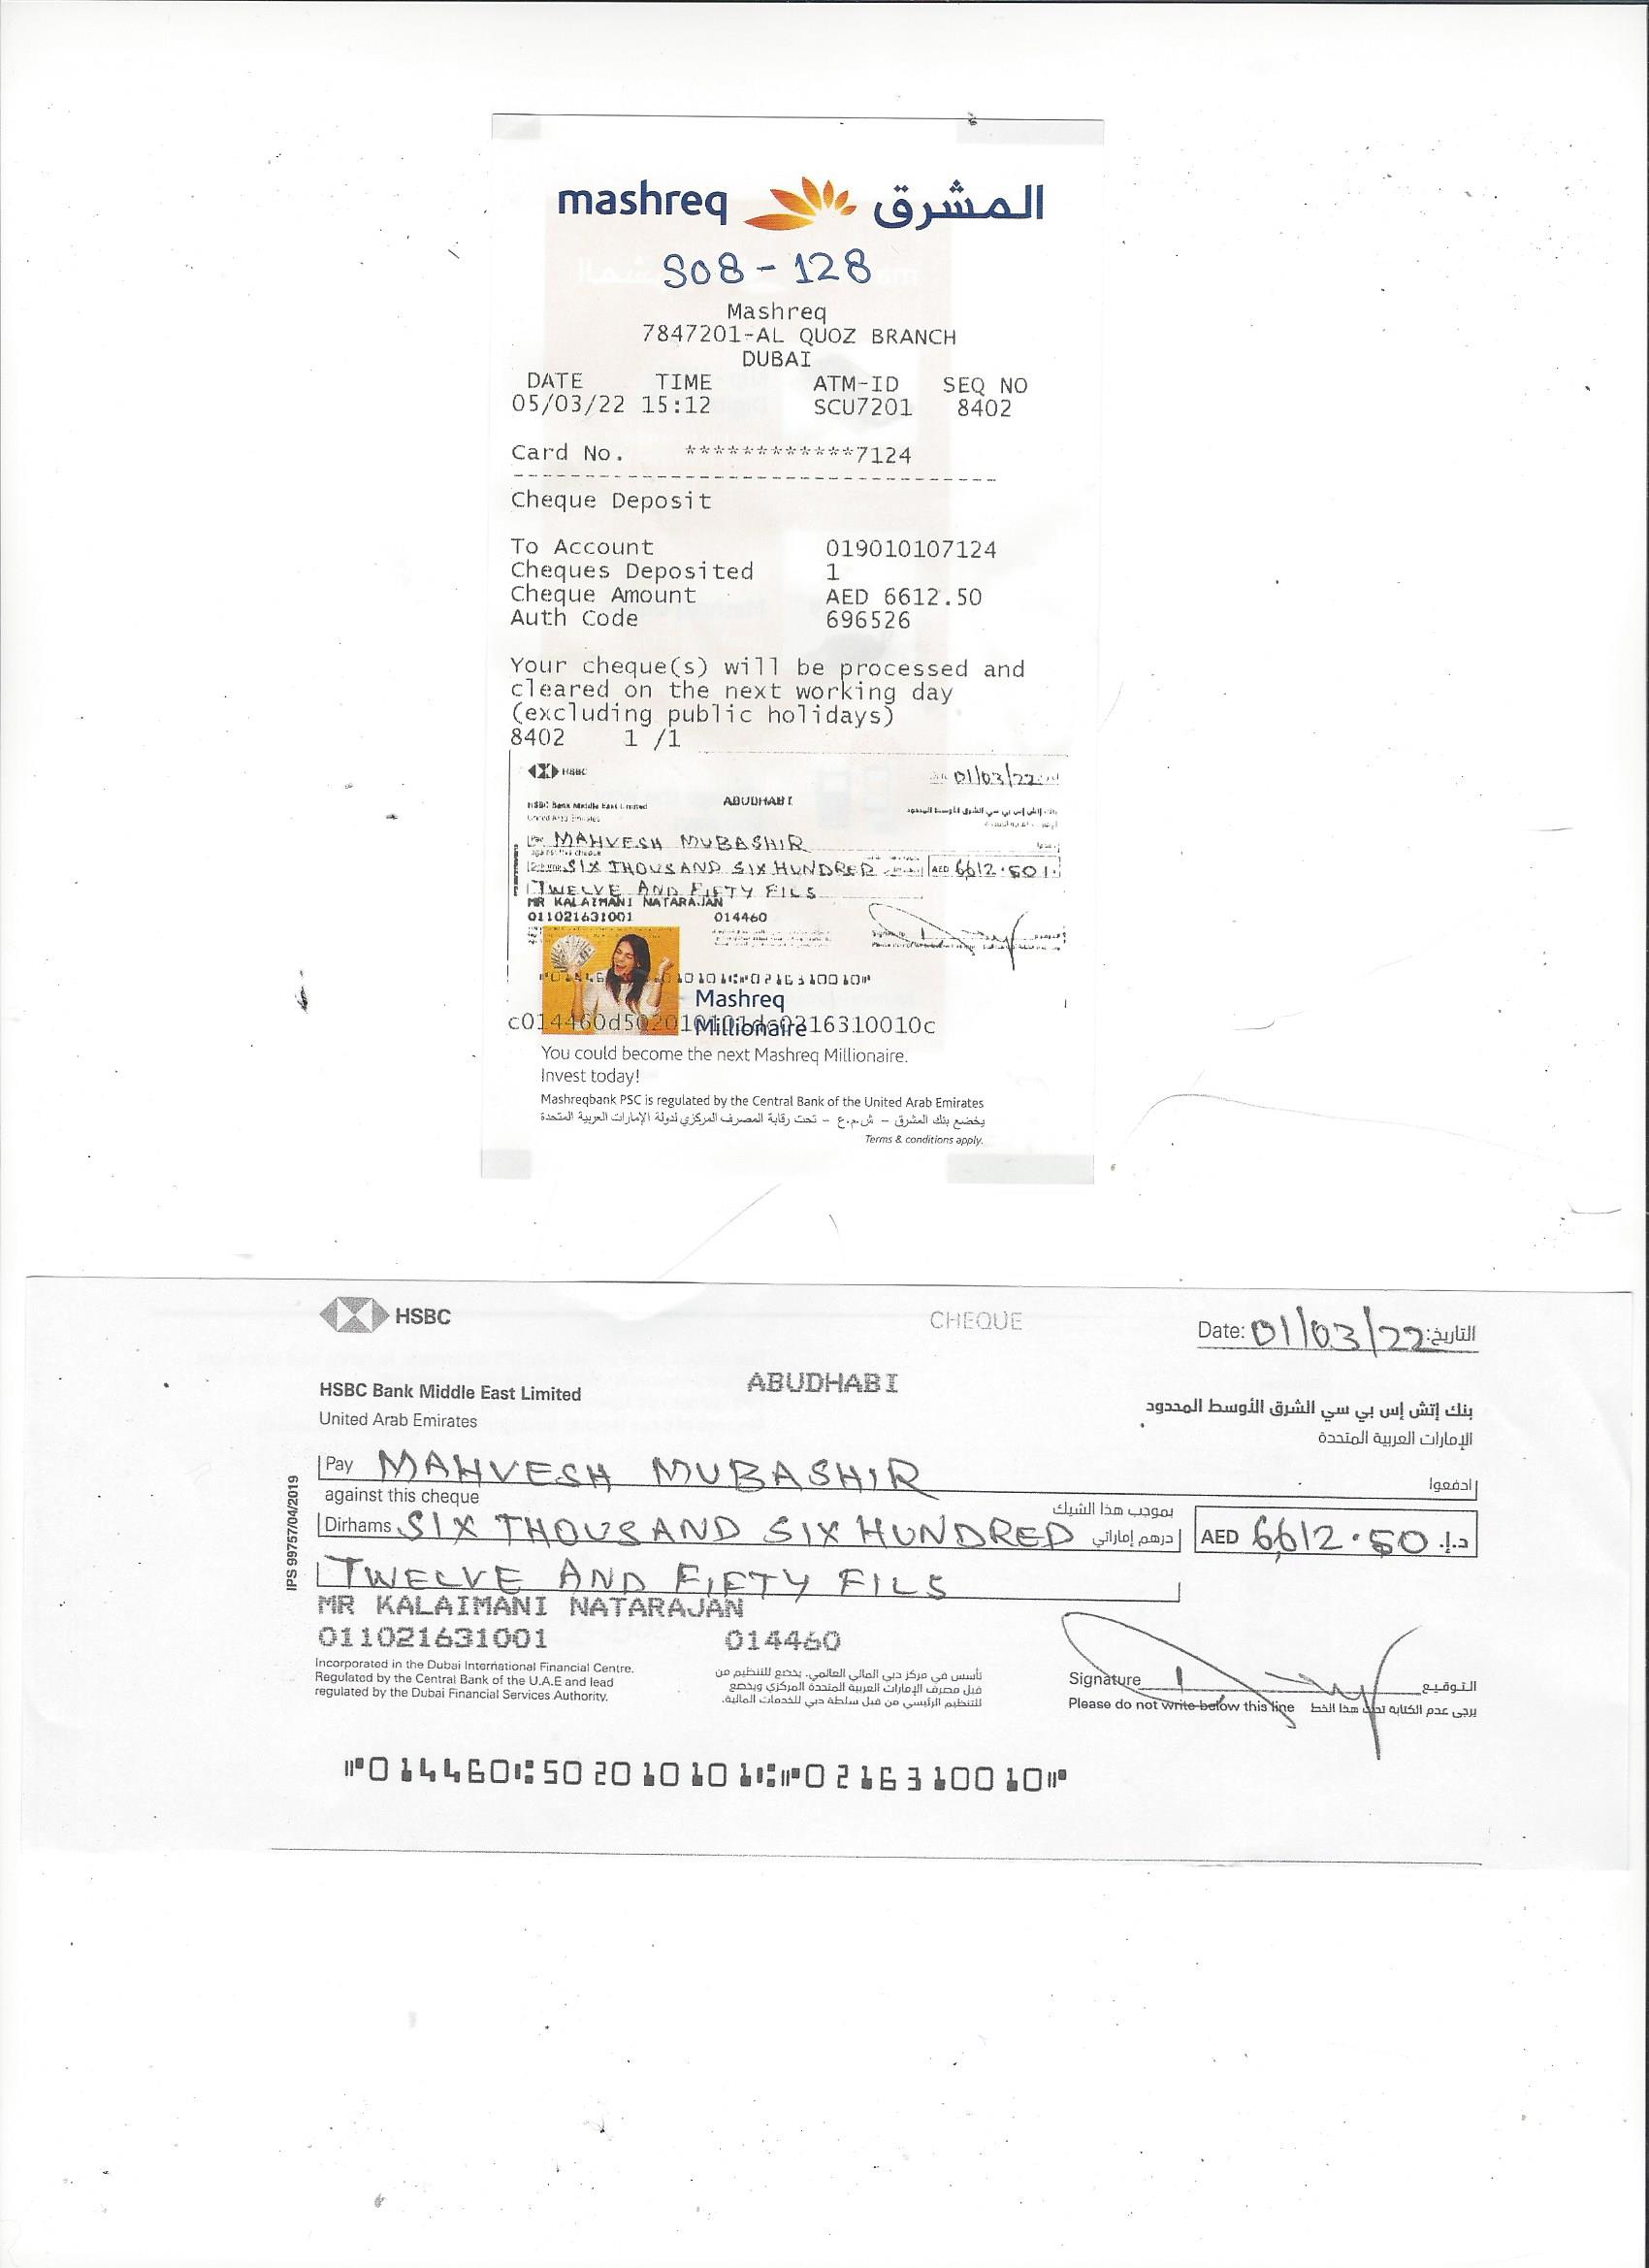 mashreq المشرق
S08 - 128
Mashreq
7847201-AL QUOZ BRANCH
DUBAI
DATE TIME ATM-ID SEQ NO
05/03/22 15:12 SCU7201 8402
Card No. ************7124
Cheque Deposit
To Account 019010107124
Cheques Deposited 1
Cheque Amount AED 6612.50
Auth Code 696526
Your cheque(s) will be processed and
cleared on the next working day
(excluding public holidays)
8402 1 /1
HSBC 01/03/22
HSBC Bank Middle East Limited ABUDHABI بنك إتش إس بي سي الشرق الأوسط المحدود
United Arab Emirates
Pay MAHVESH MUBASHIR
against this cheque
SIX THOUSAND SIX HUNDRED AED 6612.50
TWELVE AND FIFTY FILS
MR KALAIMANI NATARAJAN
011021631001 014460
Mashreq
Millionaire
You could become the next Mashreq Millionaire.
Invest today!
Mashreqbank PSC is regulated by the Central Bank of the United Arab Emirates
يخضع بنك المشرق – ش.م.ع – تحت رقابة المصرف المركزي لدولة الإمارات العربية المتحدة
Terms & conditions apply.
HSBC CHEQUE Date: 01/03/22 التاريخ:
ABUDHABI
HSBC Bank Middle East Limited بنك إتش إس بي سي الشرق الأوسط المحدود
United Arab Emirates الإمارات العربية المتحدة
Pay MAHVESH MUBASHIR ادفعوا
against this cheque بموجب هذا الشيك
Dirhams SIX THOUSAND SIX HUNDRED درهم إماراتي AED 6612.50 د.إ.
TWELVE AND FIFTY FILS
IPS 99757/04/2019
MR KALAIMANI NATARAJAN
011021631001 014460
Incorporated in the Dubai International Financial Centre.
Regulated by the Central Bank of the U.A.E and lead
regulated by the Dubai Financial Services Authority.
تأسس في مركز دبي المالي العالمي. يخضع للتنظيم من
قبل مصرف الإمارات العربية المتحدة المركزي ويخضع
للتنظيم الرئيسي من قبل سلطة دبي للخدمات المالية.
Signature التوقيع
Please do not write below this line يرجى عدم الكتابة تحت هذا الخط
⑈014460⑆502010101⑆⑈0216310010⑈